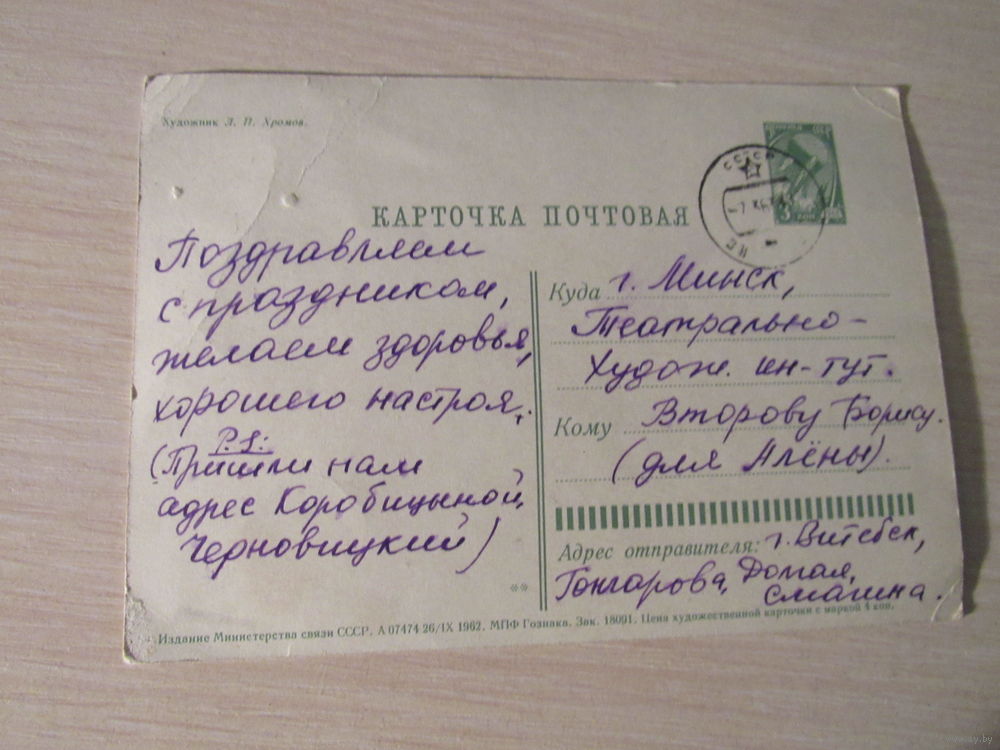 Художник Л. П. Хромов.
СССР
КАРТОЧКА ПОЧТОВАЯ
Поздравляем
с праздником,
желаем здоровья,
хорошего настроя.
P.S:
(Пришли нам
адрес Коробицыной,
Черновицкий)
Куда г. Минск,
Театрально-
Худож. ин-тут.
Кому Второву Борису.
(для Алёны).
Адрес отправителя: г. Витебск,
Гончарова, Домая,
Смагина.
Издание Министерства связи СССР. А 07474 26/IX 1962. МПФ Гознака. Зак. 18091. Цена художественной карточки с маркой 4 коп.